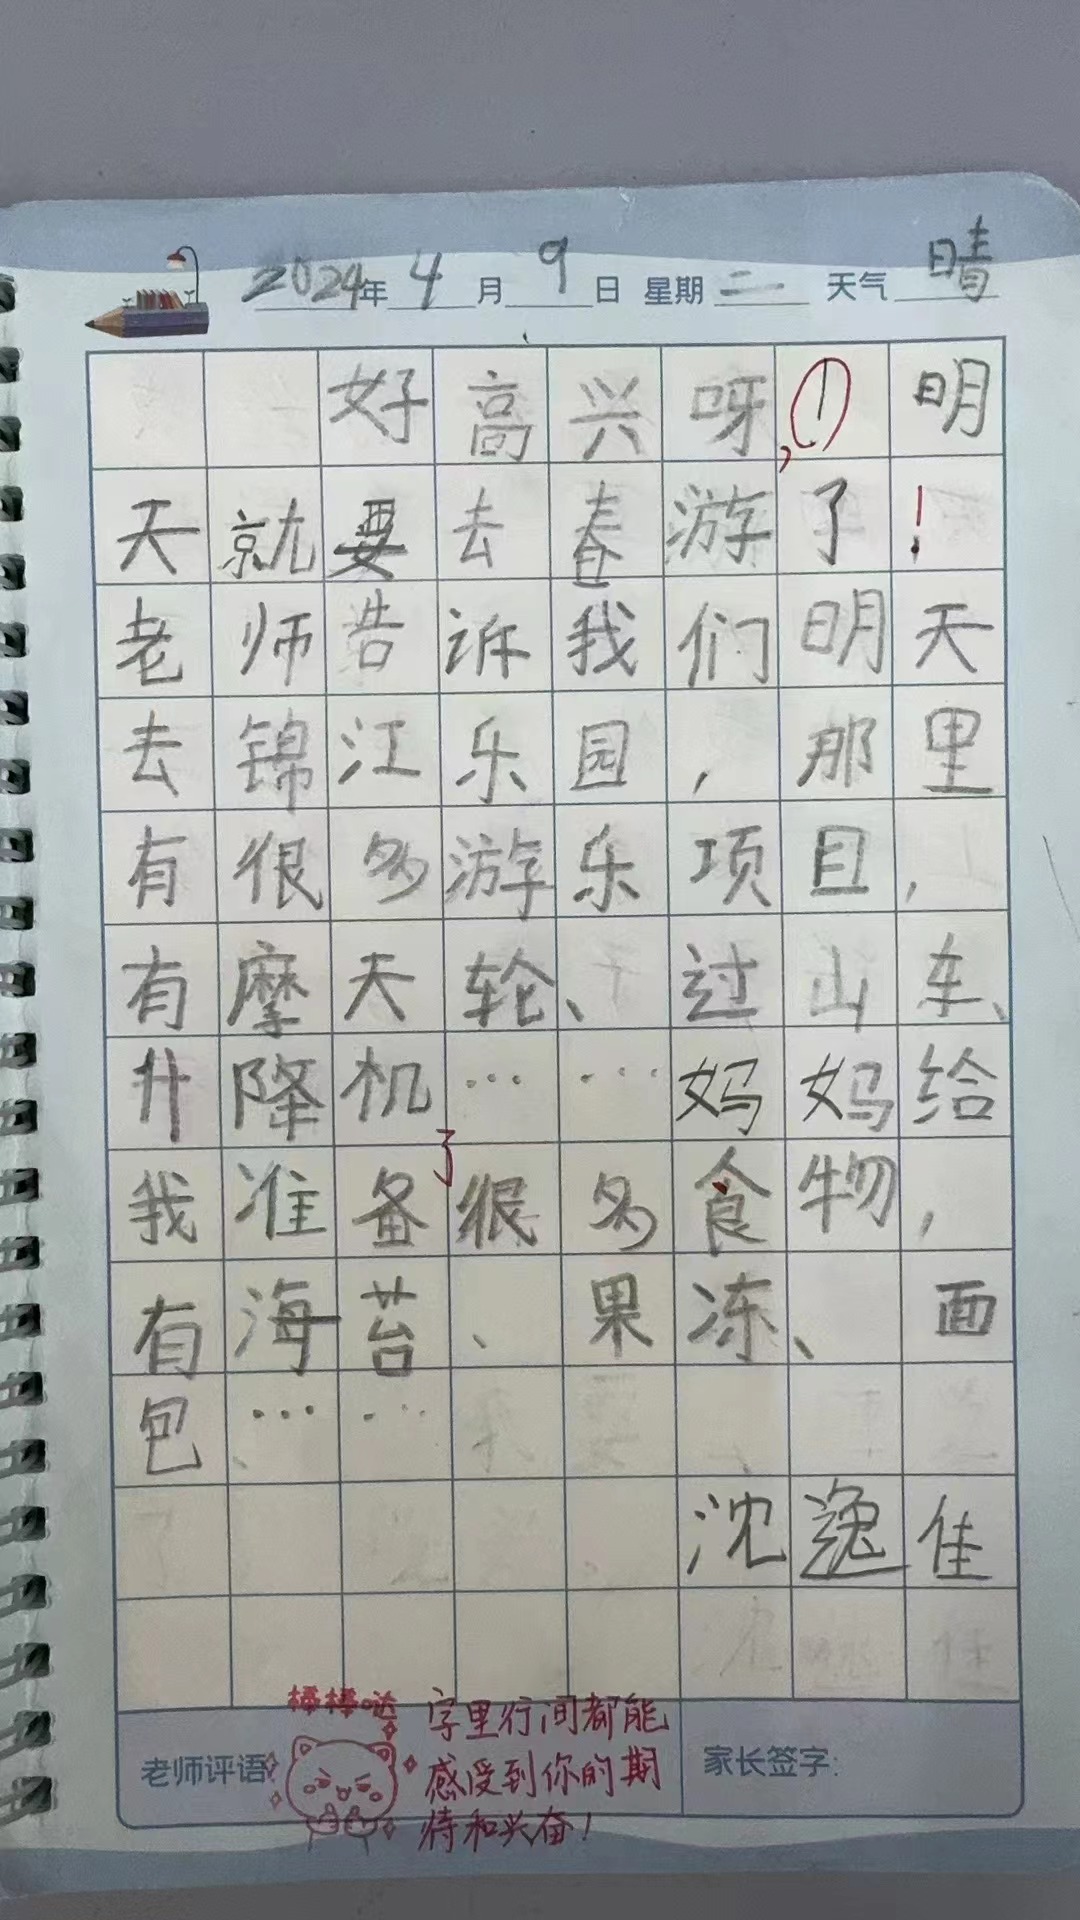 2024年4月9日 星期二 天气 晴
好高兴呀,！明
天就要去春游了！
老师告诉我们明天
去锦江乐园，那里
有很多游乐项目，
有摩天轮、过山车、
升降机……妈妈给
我准备了很多食物，
有海苔、果冻、面
包……
沈逸佳
老师评语:
棒棒哒
字里行间都能
感受到你的期
待和兴奋！
家长签字: